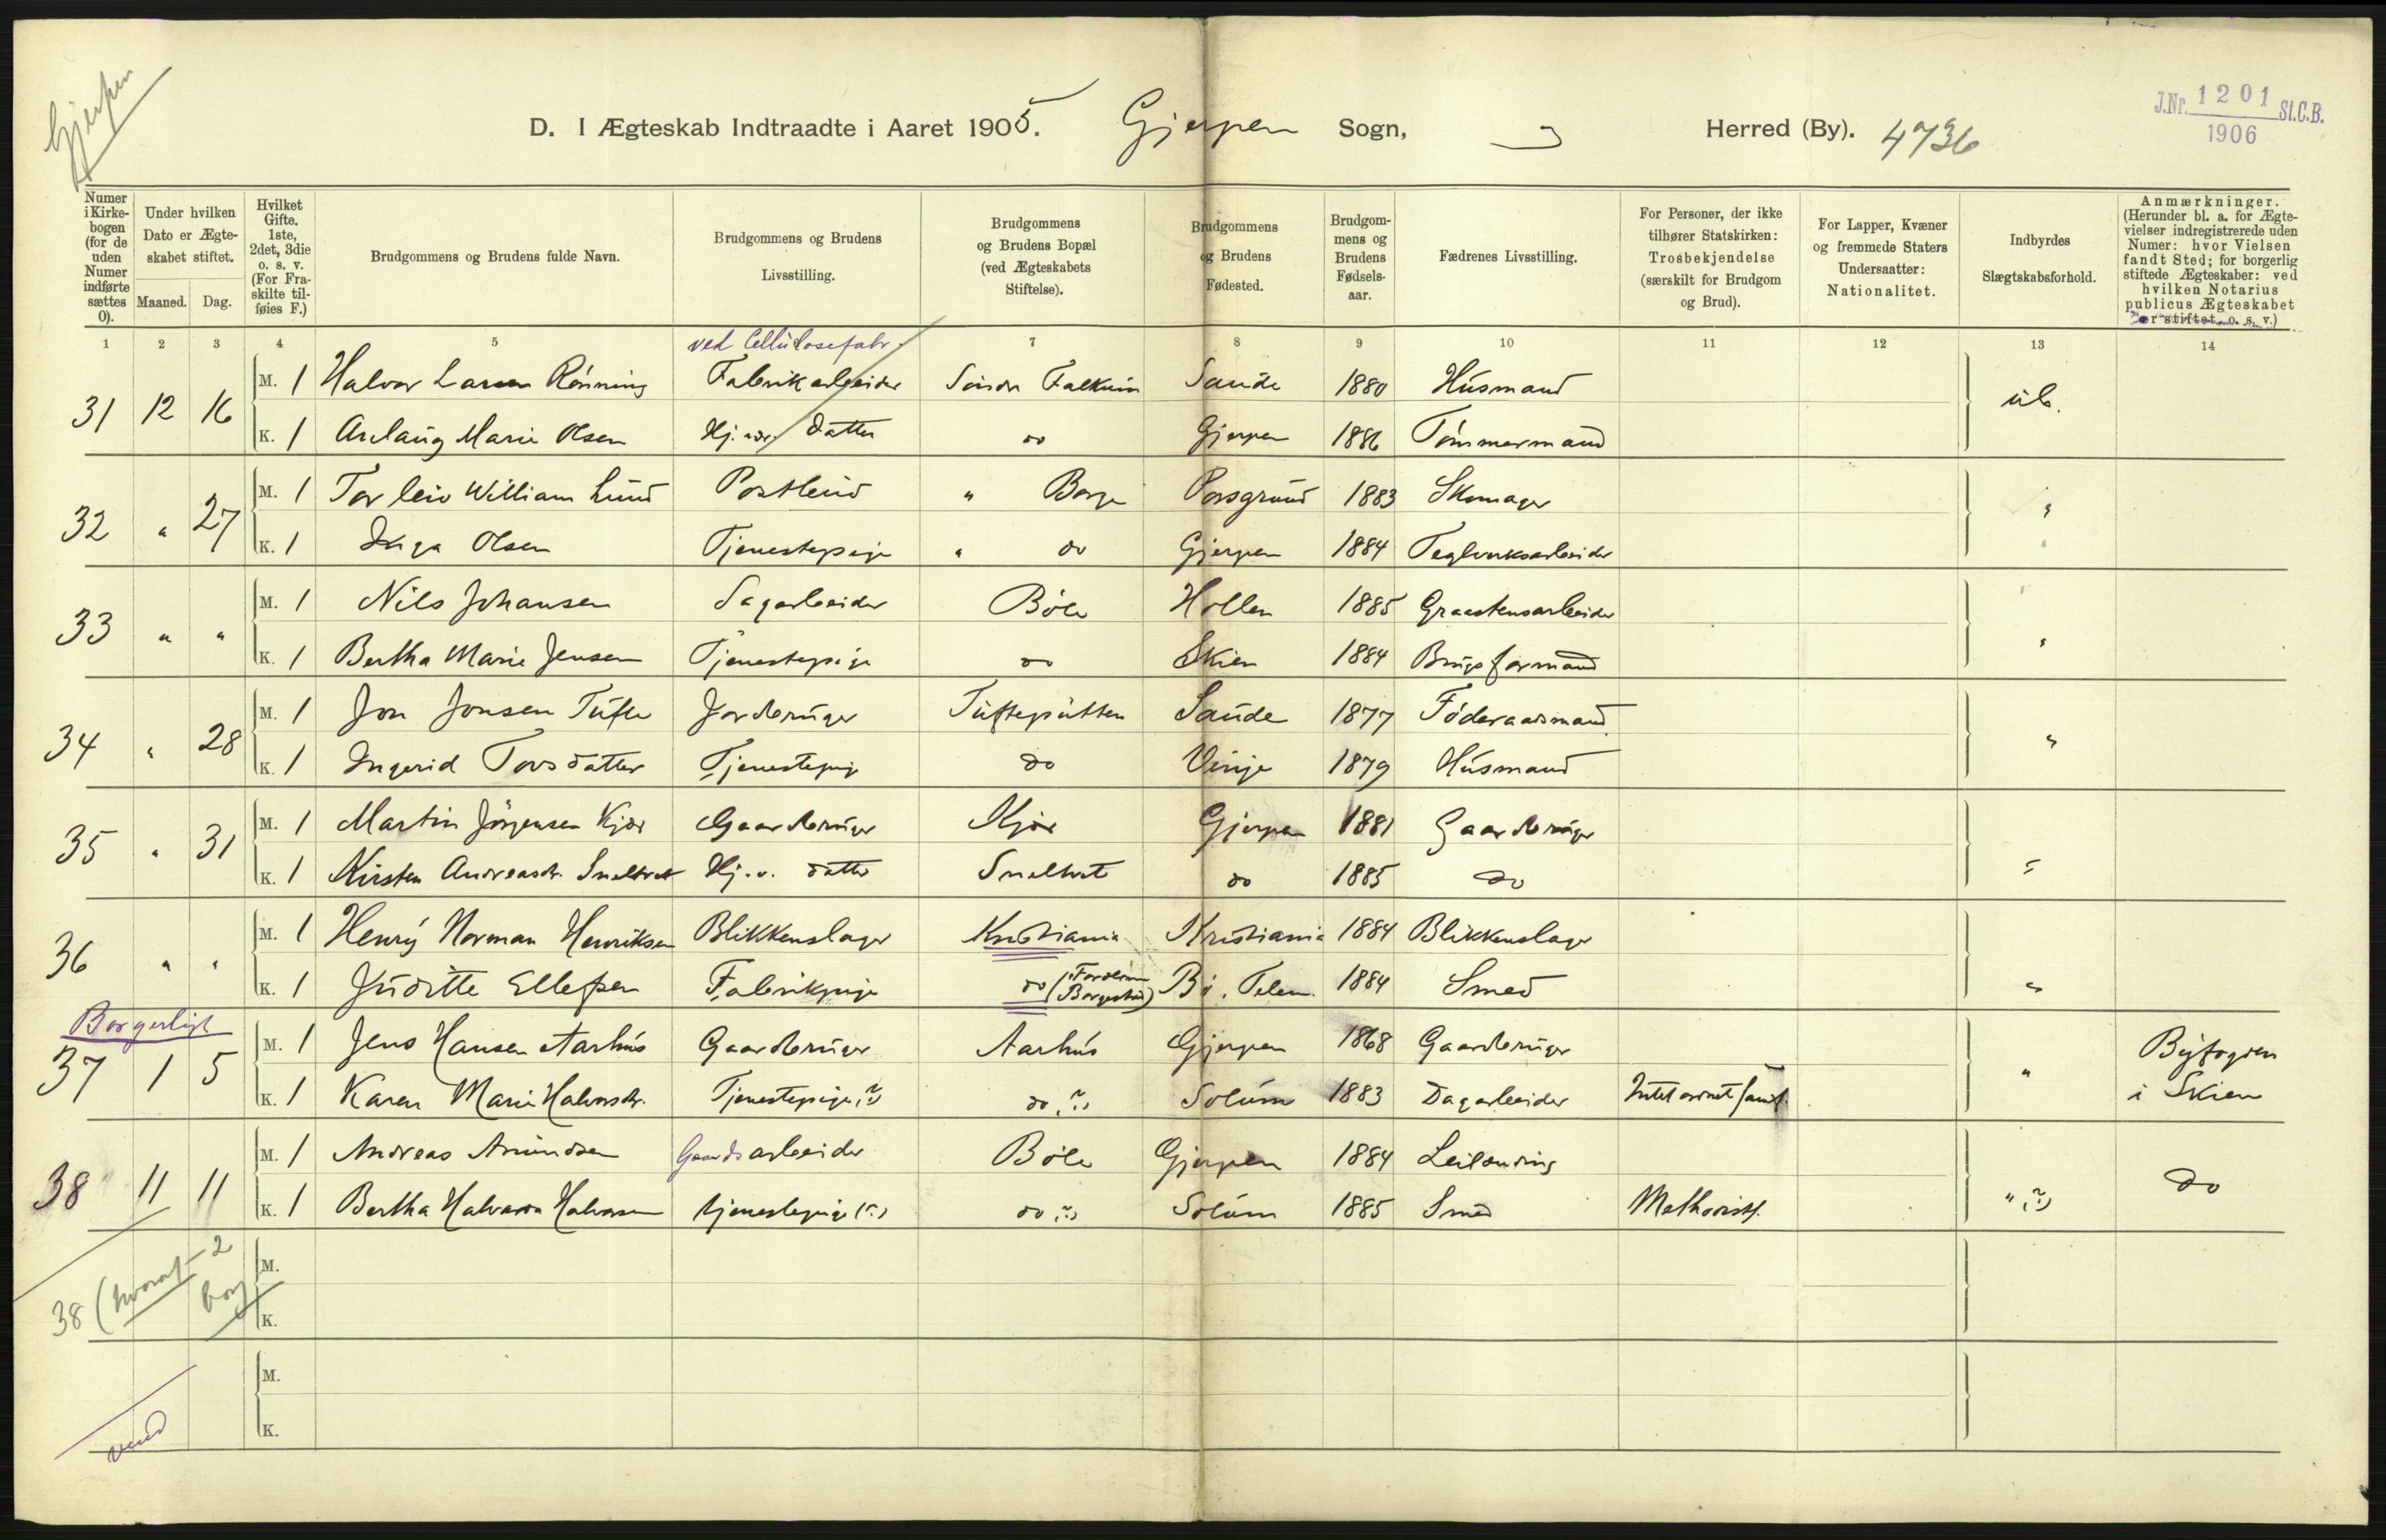 Gjerpen
D. I Ægteskab Indtraadte i Aaret 1905. Gjerpen Sogn, Herred (By). 4736
J.Nr. 1201 St.C.B.
1906
Numer i Kirkebogen (for de uden Numer indførte sættes 0).
Under hvilken Dato er Ægteskabet stiftet.
Maaned. Dag.
Hvilket Gifte. 1ste, 2det, 3die o. s. v. (For Fraskilte tilføies F.)
Brudgommens og Brudens fulde Navn.
Brudgommens og Brudens Livsstilling.
Brudgommens og Brudens Bopæl (ved Ægteskabets Stiftelse).
Brudgommens og Brudens Fødested.
Brudgommens og Brudens Fødselsaar.
Fædrenes Livsstilling.
For Personer, der ikke tilhører Statskirken: Trosbekjendelse (særskilt for Brudgom og Brud).
For Lapper, Kvæner og fremmede Staters Undersaatter: Nationalitet.
Indbyrdes Slægtskabsforhold.
Anmærkninger. (Herunder bl. a. for Ægtevielser indregistrerede uden Numer: hvor Vielsen fandt Sted; for borgerlig stiftede Ægteskaber: ved hvilken Notarius publicus Ægteskabet er stiftet o. s. v.)
1 2 3 4 5 7 8 9 10 11 12 13 14
ved Cellulosefabr.
31 12 16 M. 1 Halvor Larsen Rönning Fabrikarbeider Söndr Falkum Saude 1880 Húsmand ub.
K. 1 Aslaug Marie Olsen Hj. datter do Gjerpen 1886 Tömmermand
32 " 27 M. 1 Torleiv William Lund Postbud " Borge Porsgrund 1883 Skomager "
K. 1 Inga Olsen Tjenestepige " do Gjerpen 1884 Teglverksarbeider
33 " " M. 1 Nils Johansen Sagarbeider Böle Hollen 1885 Graastensarbeider "
K. 1 Bertha Marie Jensen Tjenestepige do Skien 1884 Brugsformand
34 " 28 M. 1 Jon Jonsen Tufte Jordbruger Tufteputten Saude 1877 Föderaadsmand "
K. 1 Ingerid Torsdatter Tjenestepige do Vinje 1879 Húsmand
35 " 31 M. 1 Martin Jörgensen Kjær Gaardbruger Kjær Gjerpen 1881 Gaardbruger "
K. 1 Kirsten Andreasdr. Sneltvet Hj.v. datter Sneltvet do 1885 do
36 " " M. 1 Henry Norman Henriksen Blikkenslager Kristiania Kristiania 1884 Blikkenslager "
K. 1 Juditte Ellefsen Fabrikpige do (Fordum Borgestad) Bö. Telem. 1884 Smed
Borgerligt
37 1 5 M. 1 Jens Hansen Aarhus Gaardbruger Aarhus Gjerpen 1868 Gaardbruger " Byfogden
K. 1 Karen Marie Halvorsdr. Tjenestepige (?) do (?) Solum 1883 Dagarbeider Intet ordnet samf. i Skien
38 11 11 M. 1 Andreas Amundsen Gaardsarbeider Böle Gjerpen 1884 Leilending do
K. 1 Bertha Halvarda Halvorsen tjenestepige (?) do (?) Solum 1885 Smed Methodist. " (?)
38 (hvoraf 2
borg
M.
K.
M.
K.
vend